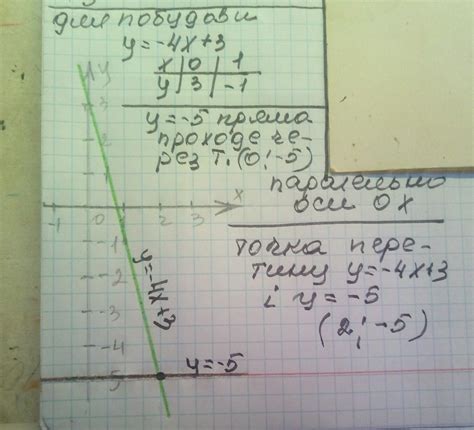 для побудови
y=-4x+3
x | 0 | 1
y | 3 | -1
y=-5 пряма
проходе че-
рез т. (0; -5)
паралельно
оси OX
точка пере-
тину y=-4x+3
і y=-5
(2; -5)
y
3
2
1
-1 0 1 2 3 x
-1
-2
-3
-4
-5
y=-4x+3
y=-5